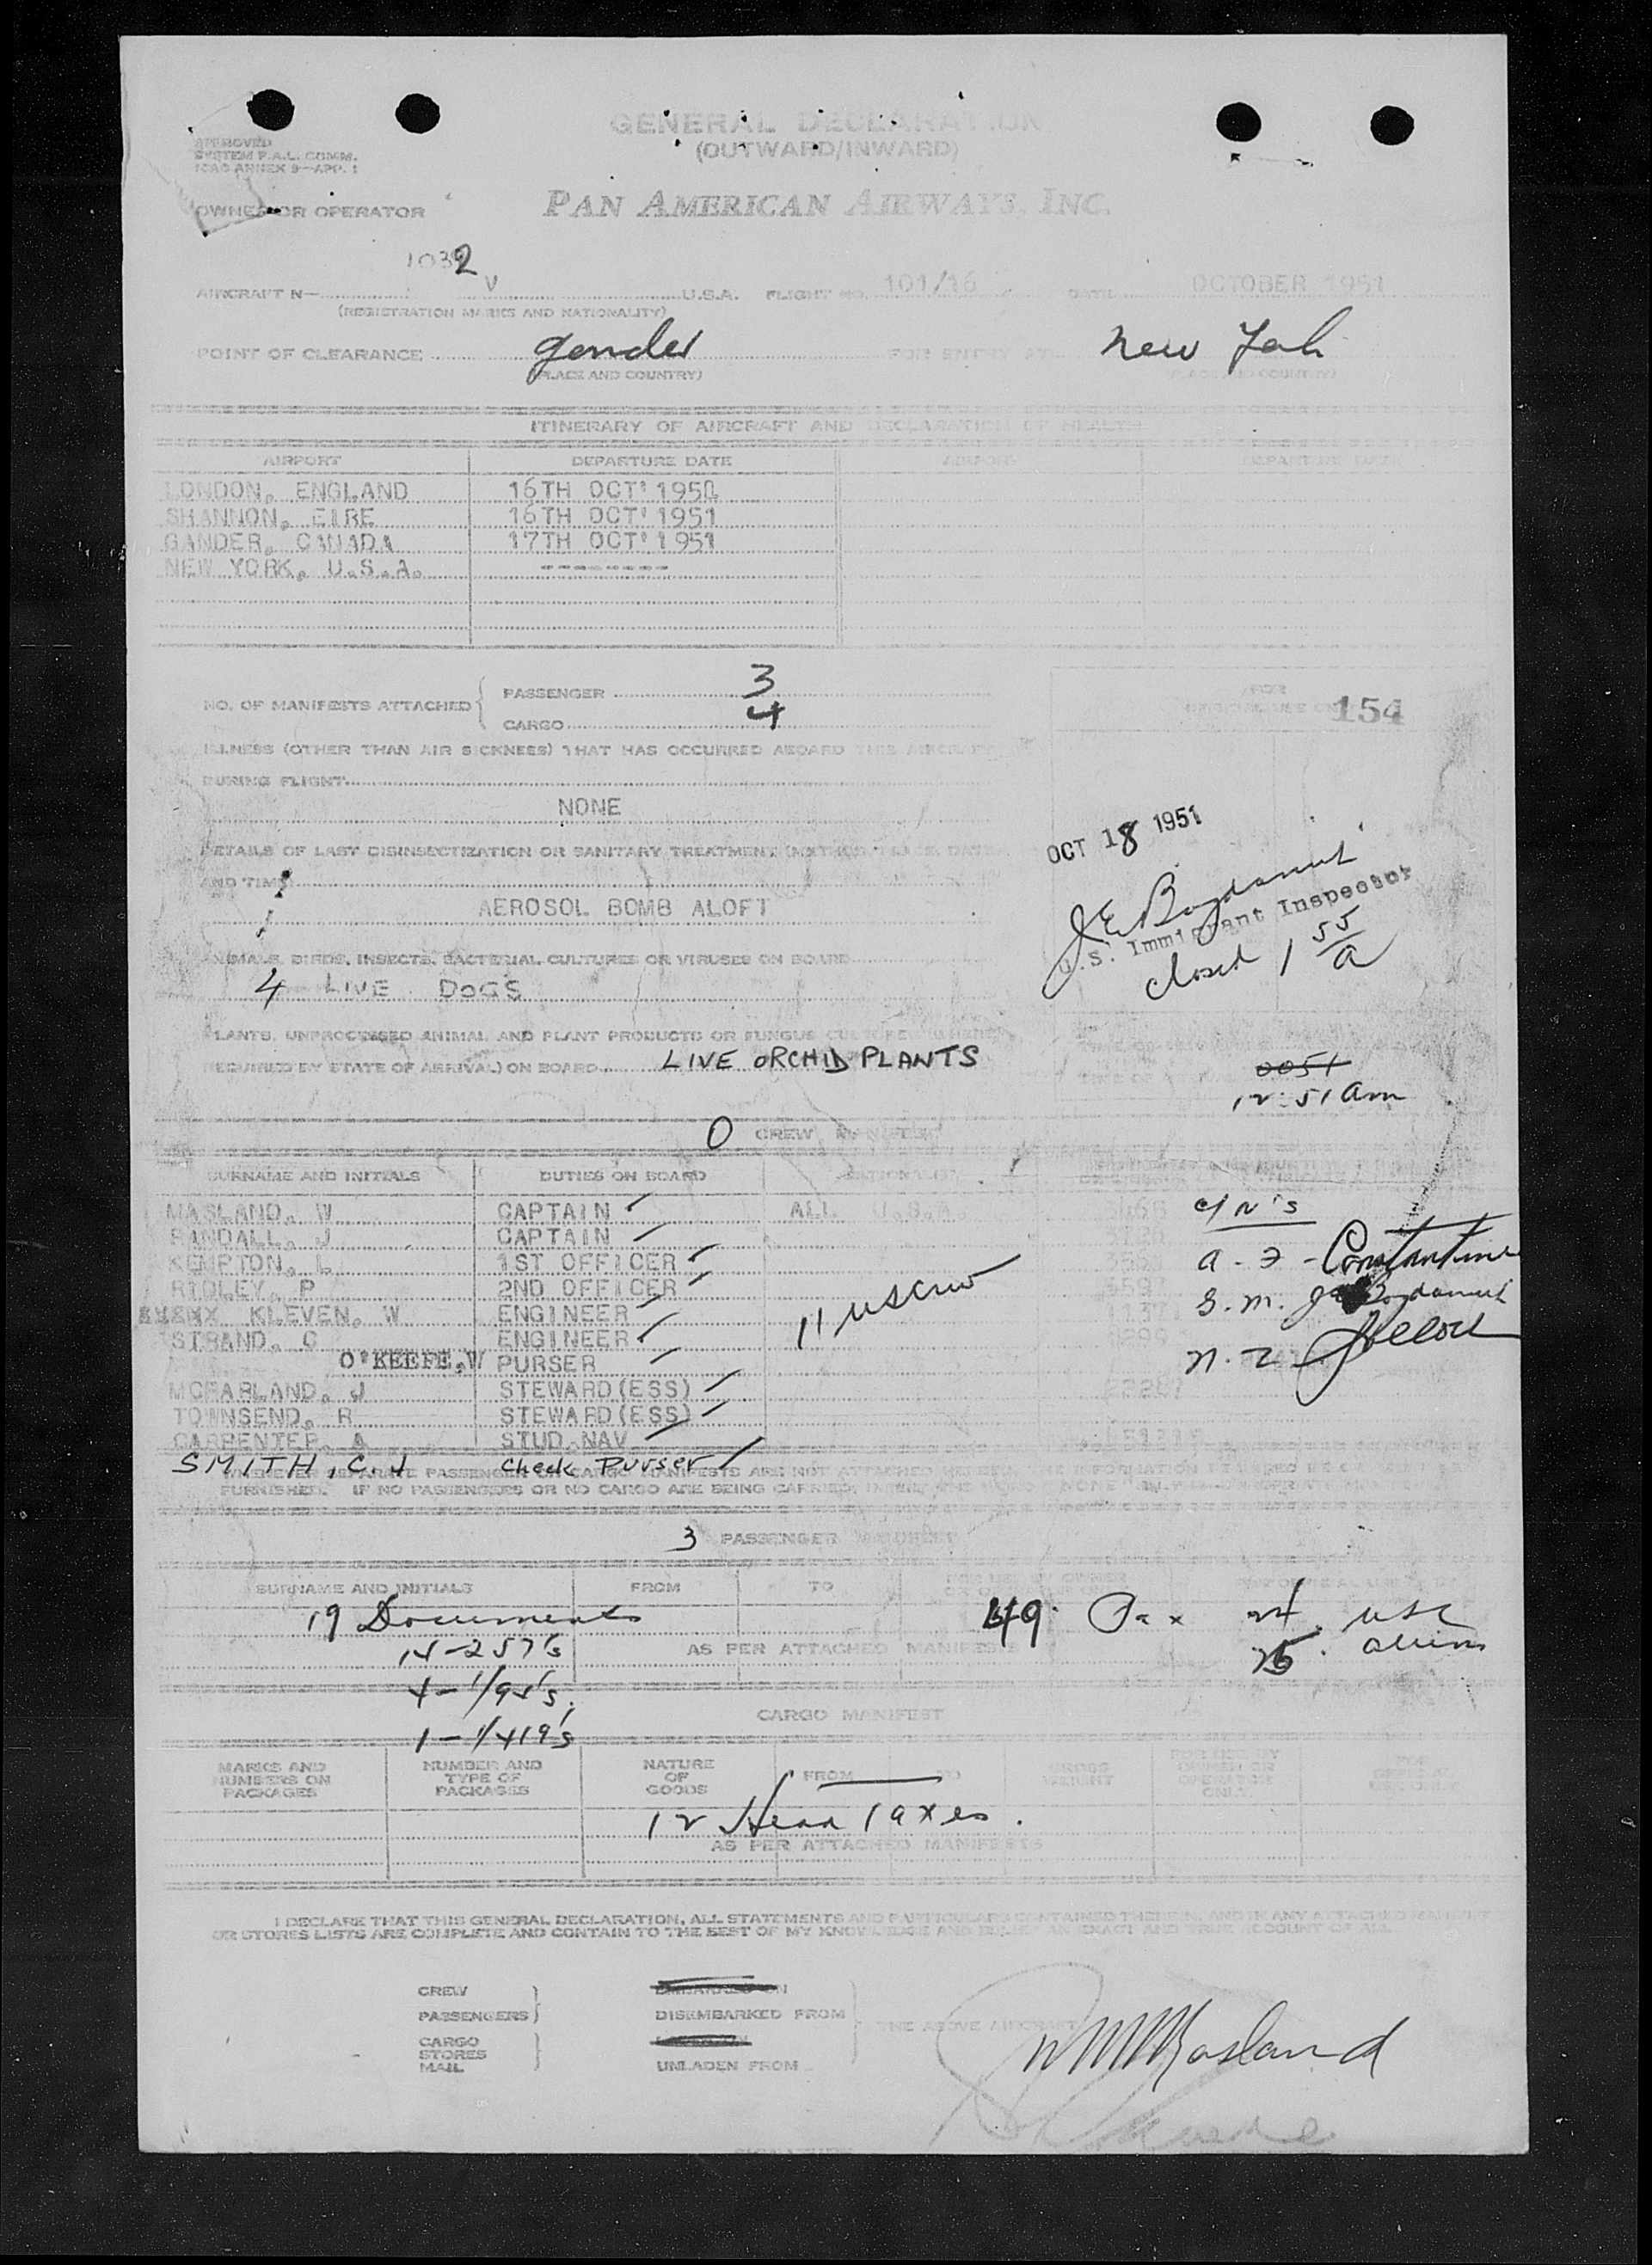 GENERAL DECLARATION
(OUTWARD/INWARD)
APPROVED
SYSTEM F.A.L. COMM.
ICAO ANNEX 9—APP. 1
OWNER OR OPERATOR PAN AMERICAN AIRWAYS, INC.
1032 V
AIRCRAFT N— U.S.A. FLIGHT NO. 101/16 DATE OCTOBER 1951
(REGISTRATION MARKS AND NATIONALITY)
POINT OF CLEARANCE Gander FOR ENTRY AT New York
(PLACE AND COUNTRY) (PLACE AND COUNTRY)
ITINERARY OF AIRCRAFT AND DECLARATION OF HEALTH
AIRPORT DEPARTURE DATE AIRPORT DEPARTURE DATE
LONDON, ENGLAND 16TH OCT' 1951
SHANNON, EIRE 16TH OCT' 1951
GANDER, CANADA 17TH OCT' 1951
NEW YORK, U.S.A. --------
NO. OF MANIFESTS ATTACHED { PASSENGER 3
CARGO 4
FOR
OFFICIAL USE ONLY 154
ILLNESS (OTHER THAN AIR SICKNESS) THAT HAS OCCURRED ABOARD THIS AIRCRAFT
DURING FLIGHT
NONE
DETAILS OF LAST DISINSECTIZATION OR SANITARY TREATMENT (METHOD, PLACE, DATE
AND TIME)
AEROSOL BOMB ALOFT
OCT 18 1951
J E Bogdanut
U.S. Immigrant Inspector
closed 1 55 a
ANIMALS, BIRDS, INSECTS, BACTERIAL CULTURES OR VIRUSES ON BOARD
4 LIVE DOGS
PLANTS, UNPROCESSED ANIMAL AND PLANT PRODUCTS OR FUNGUS CULTURES (WHERE
REQUIRED BY STATE OF ARRIVAL) ON BOARD LIVE ORCHID PLANTS
0051
12:51 am
0 CREW MANIFEST
SURNAME AND INITIALS DUTIES ON BOARD NATIONALITY
MASLAND, W CAPTAIN ALL U.S.A.
RANDALL, J CAPTAIN
KEMPTON, L 1ST OFFICER
RIDLEY, P 2ND OFFICER
KLEVEN, W ENGINEER
STRAND, C ENGINEER
O'KEEFE, W PURSER
MCFARLAND, J STEWARD(ESS)
TOWNSEND, R STEWARD(ESS)
CARPENTER, A STUD. NAV
SMITH, C. J Check Purser
11 uscrew
c/N's
a. 2 - Constantine
S. m.
n. z
WHENEVER SEPARATE PASSENGER OR CARGO MANIFESTS ARE NOT ATTACHED
FURNISHED. IF NO PASSENGERS OR NO CARGO ARE BEING CARRIED,
3 PASSENGER MANIFEST
SURNAME AND INITIALS FROM TO
19 Documents 49 Pax 24 usc
14-257's AS PER ATTACHED MANIFESTS 25 aliens
4-1/95's
1-1/419's
CARGO MANIFEST
MARKS AND NUMBERS ON PACKAGES NUMBER AND TYPE OF PACKAGES NATURE OF GOODS FROM TO GROSS WEIGHT
12 Head Taxes.
AS PER ATTACHED MANIFESTS
I DECLARE THAT THIS GENERAL DECLARATION, ALL STATEMENTS AND PARTICULARS CONTAINED THEREIN, AND IN ANY ATTACHED
OR STORES LISTS ARE COMPLETE AND CONTAIN TO THE BEST OF MY KNOWLEDGE AND BELIEF AN EXACT AND TRUE ACCOUNT OF ALL
CREW
PASSENGERS } DISEMBARKED FROM
CARGO
STORES
MAIL } UNLADEN FROM
THE ABOVE AIRCRAFT
W M Masland
SIGNATURE